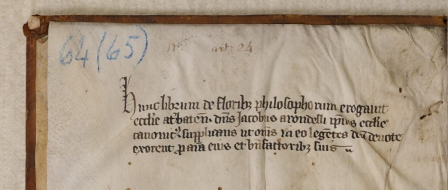 64 (65)
Hunc librum de floribȝ philosophorum erogauit
ecclie
dn̄s Jacobus arondelli ipius ecclie
canonicꝰ supplicans ut om̄s in eo legētes deū deuote
exorent ꝓ aīa eius et bn̄factoribȝ suis